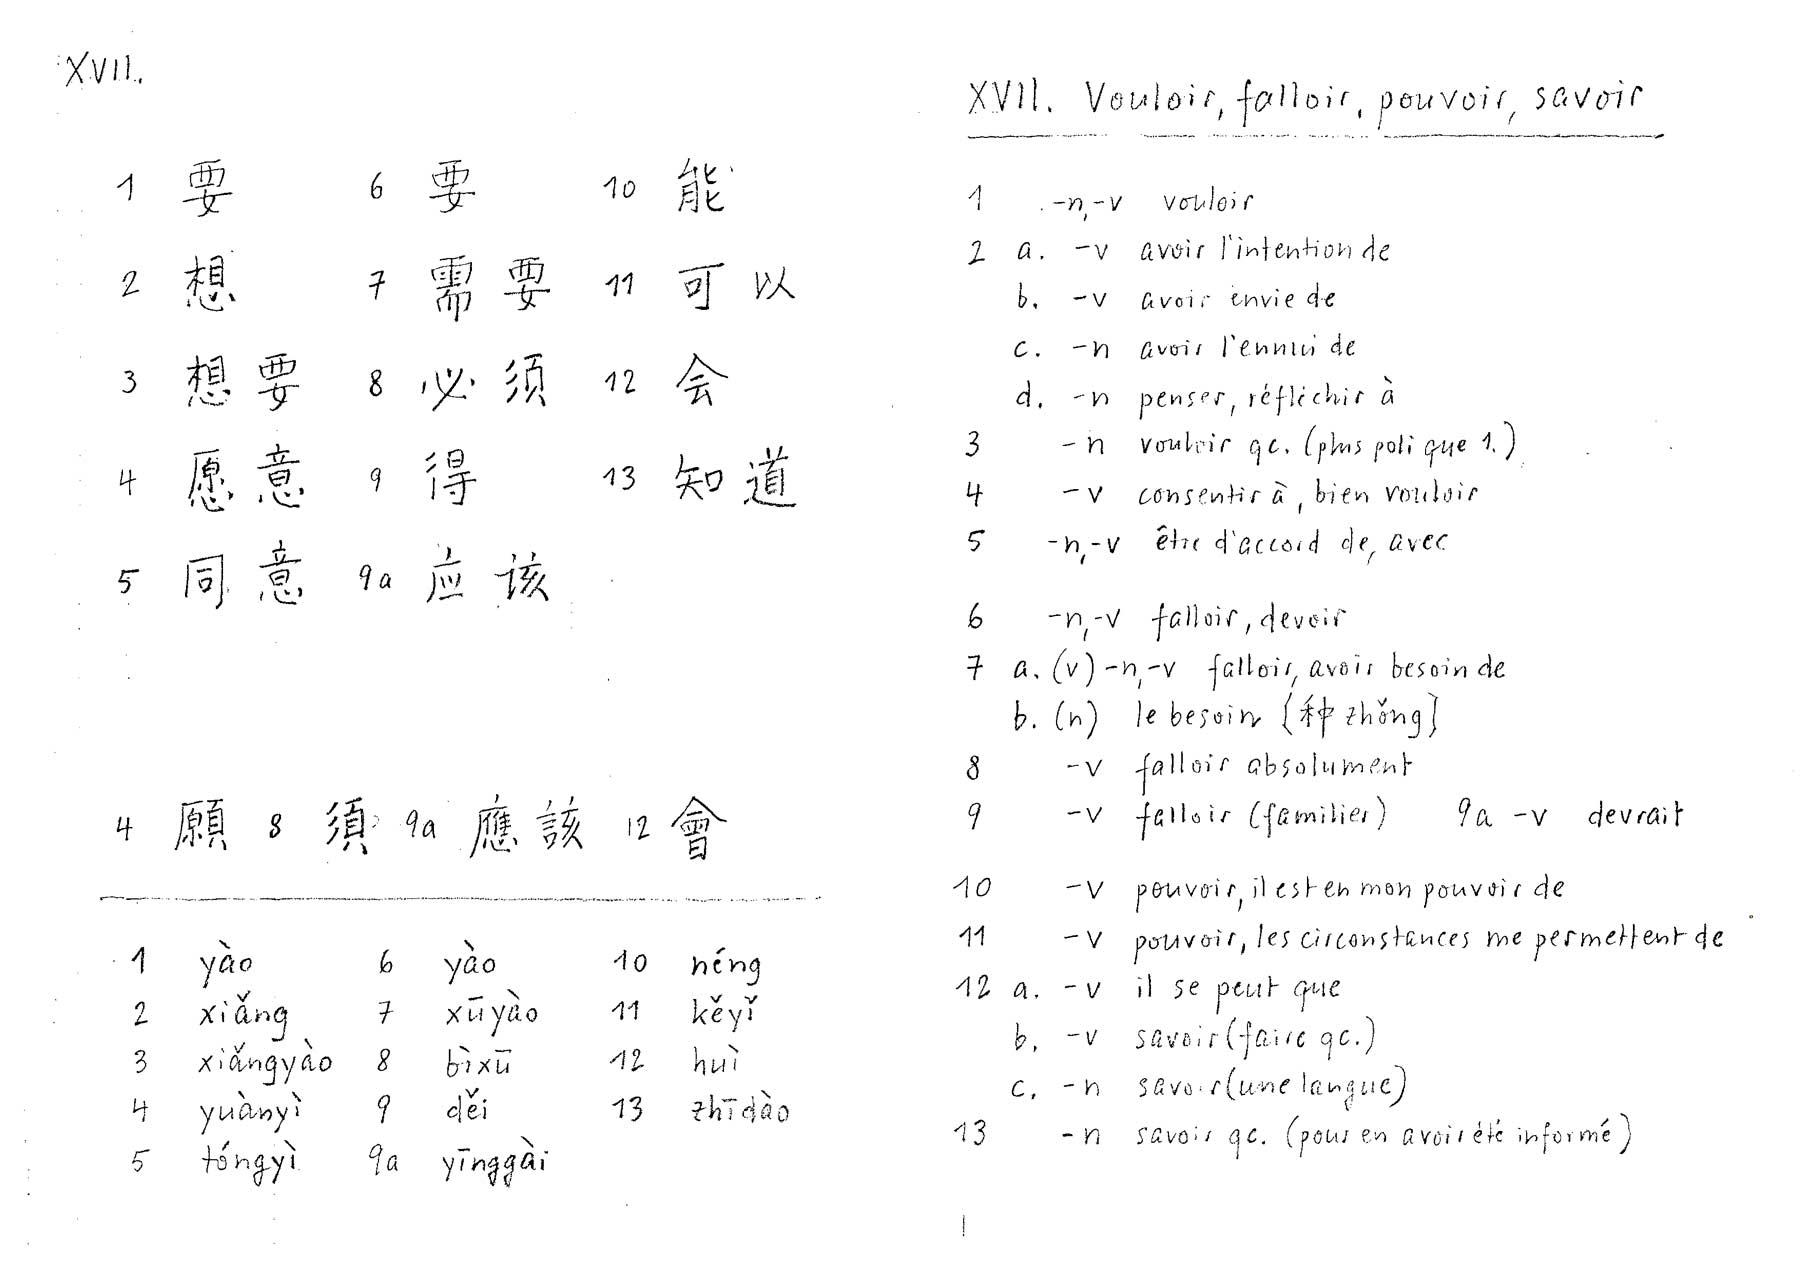 XVII.
1 要 6 要 10 能
2 想 7 需要 11 可以
3 想要 8 必须 12 会
4 愿意 9 得 13 知道
5 同意 9a 应该
4 願 8 須 9a 應該 12 會
1 yào 6 yào 10 néng
2 xiǎng 7 xūyào 11 kěyǐ
3 xiǎngyào 8 bìxū 12 huì
4 yuànyì 9 děi 13 zhīdào
5 tóngyì 9a yīnggài
XVII. Vouloir, falloir, pouvoir, savoir
1 -n, -v vouloir
2 a. -v avoir l'intention de
b. -v avoir envie de
c. -n avoir l'ennui de
d. -n penser, réfléchir à
3 -n vouloir qc. (plus poli que 1.)
4 -v consentir à, bien vouloir
5 -n, -v être d'accord de, avec
6 -n, -v falloir, devoir
7 a. (v) -n, -v falloir, avoir besoin de
b. (n) le besoin {种 zhǒng}
8 -v falloir absolument
9 -v falloir (familier) 9a -v devrait
10 -v pouvoir, il est en mon pouvoir de
11 -v pouvoir, les circonstances me permettent de
12 a. -v il se peut que
b. -v savoir (faire qc.)
c. -n savoir (une langue)
13 -n savoir qc. (pour en avoir été informé)